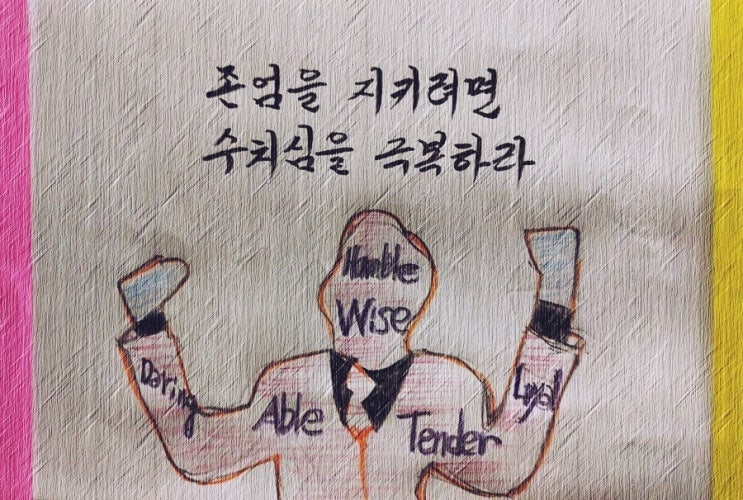 존엄을 지키려면
수치심을 극복하라
Humble
Wise
Daring
Able
Tender
Loyal